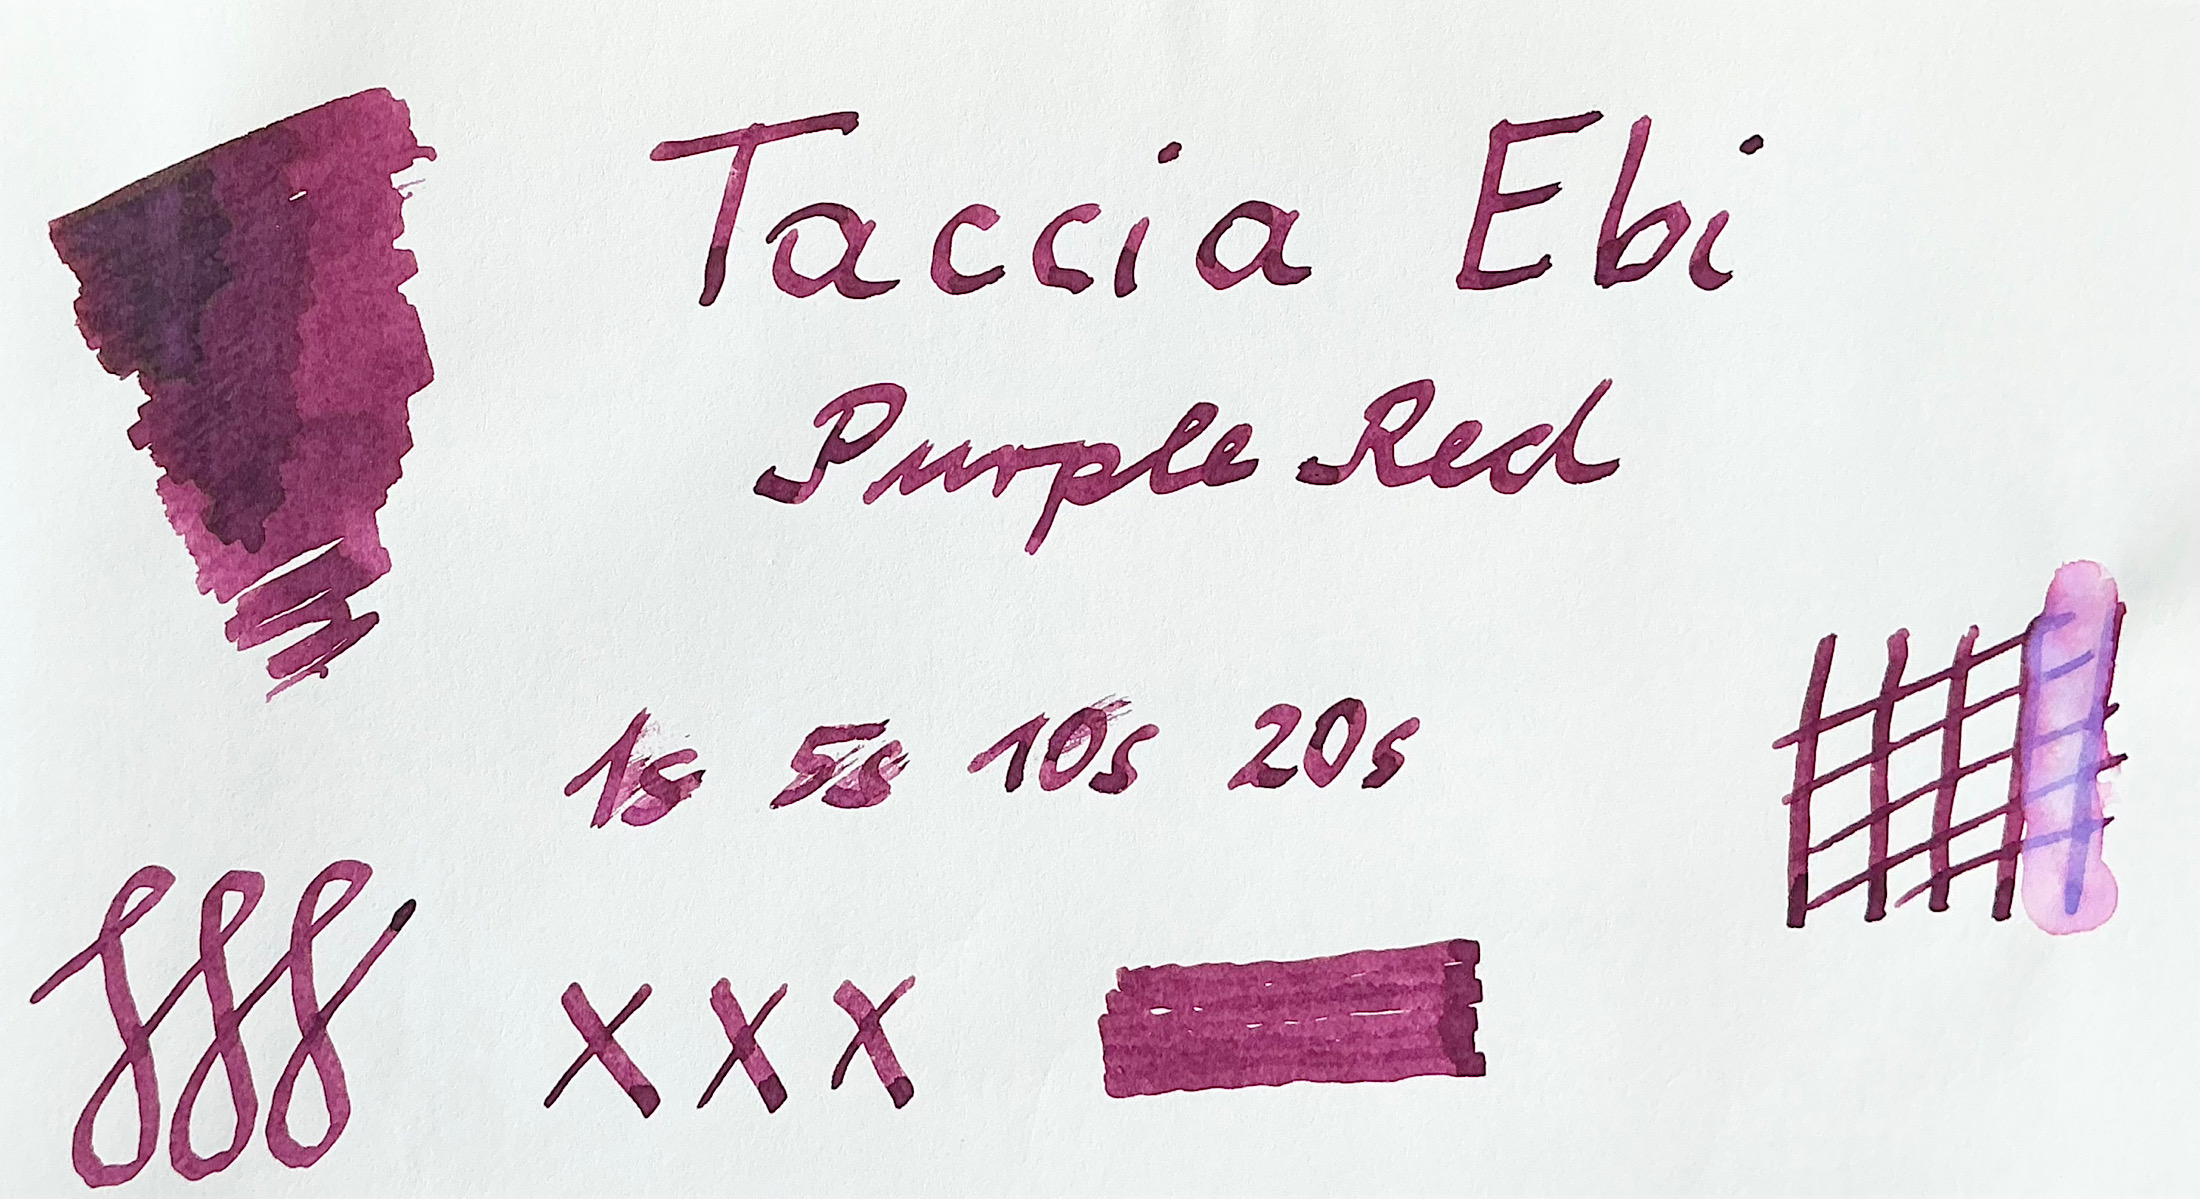 Taccia Ebi
Purple Red
1s 5s 10s 20s
x x x